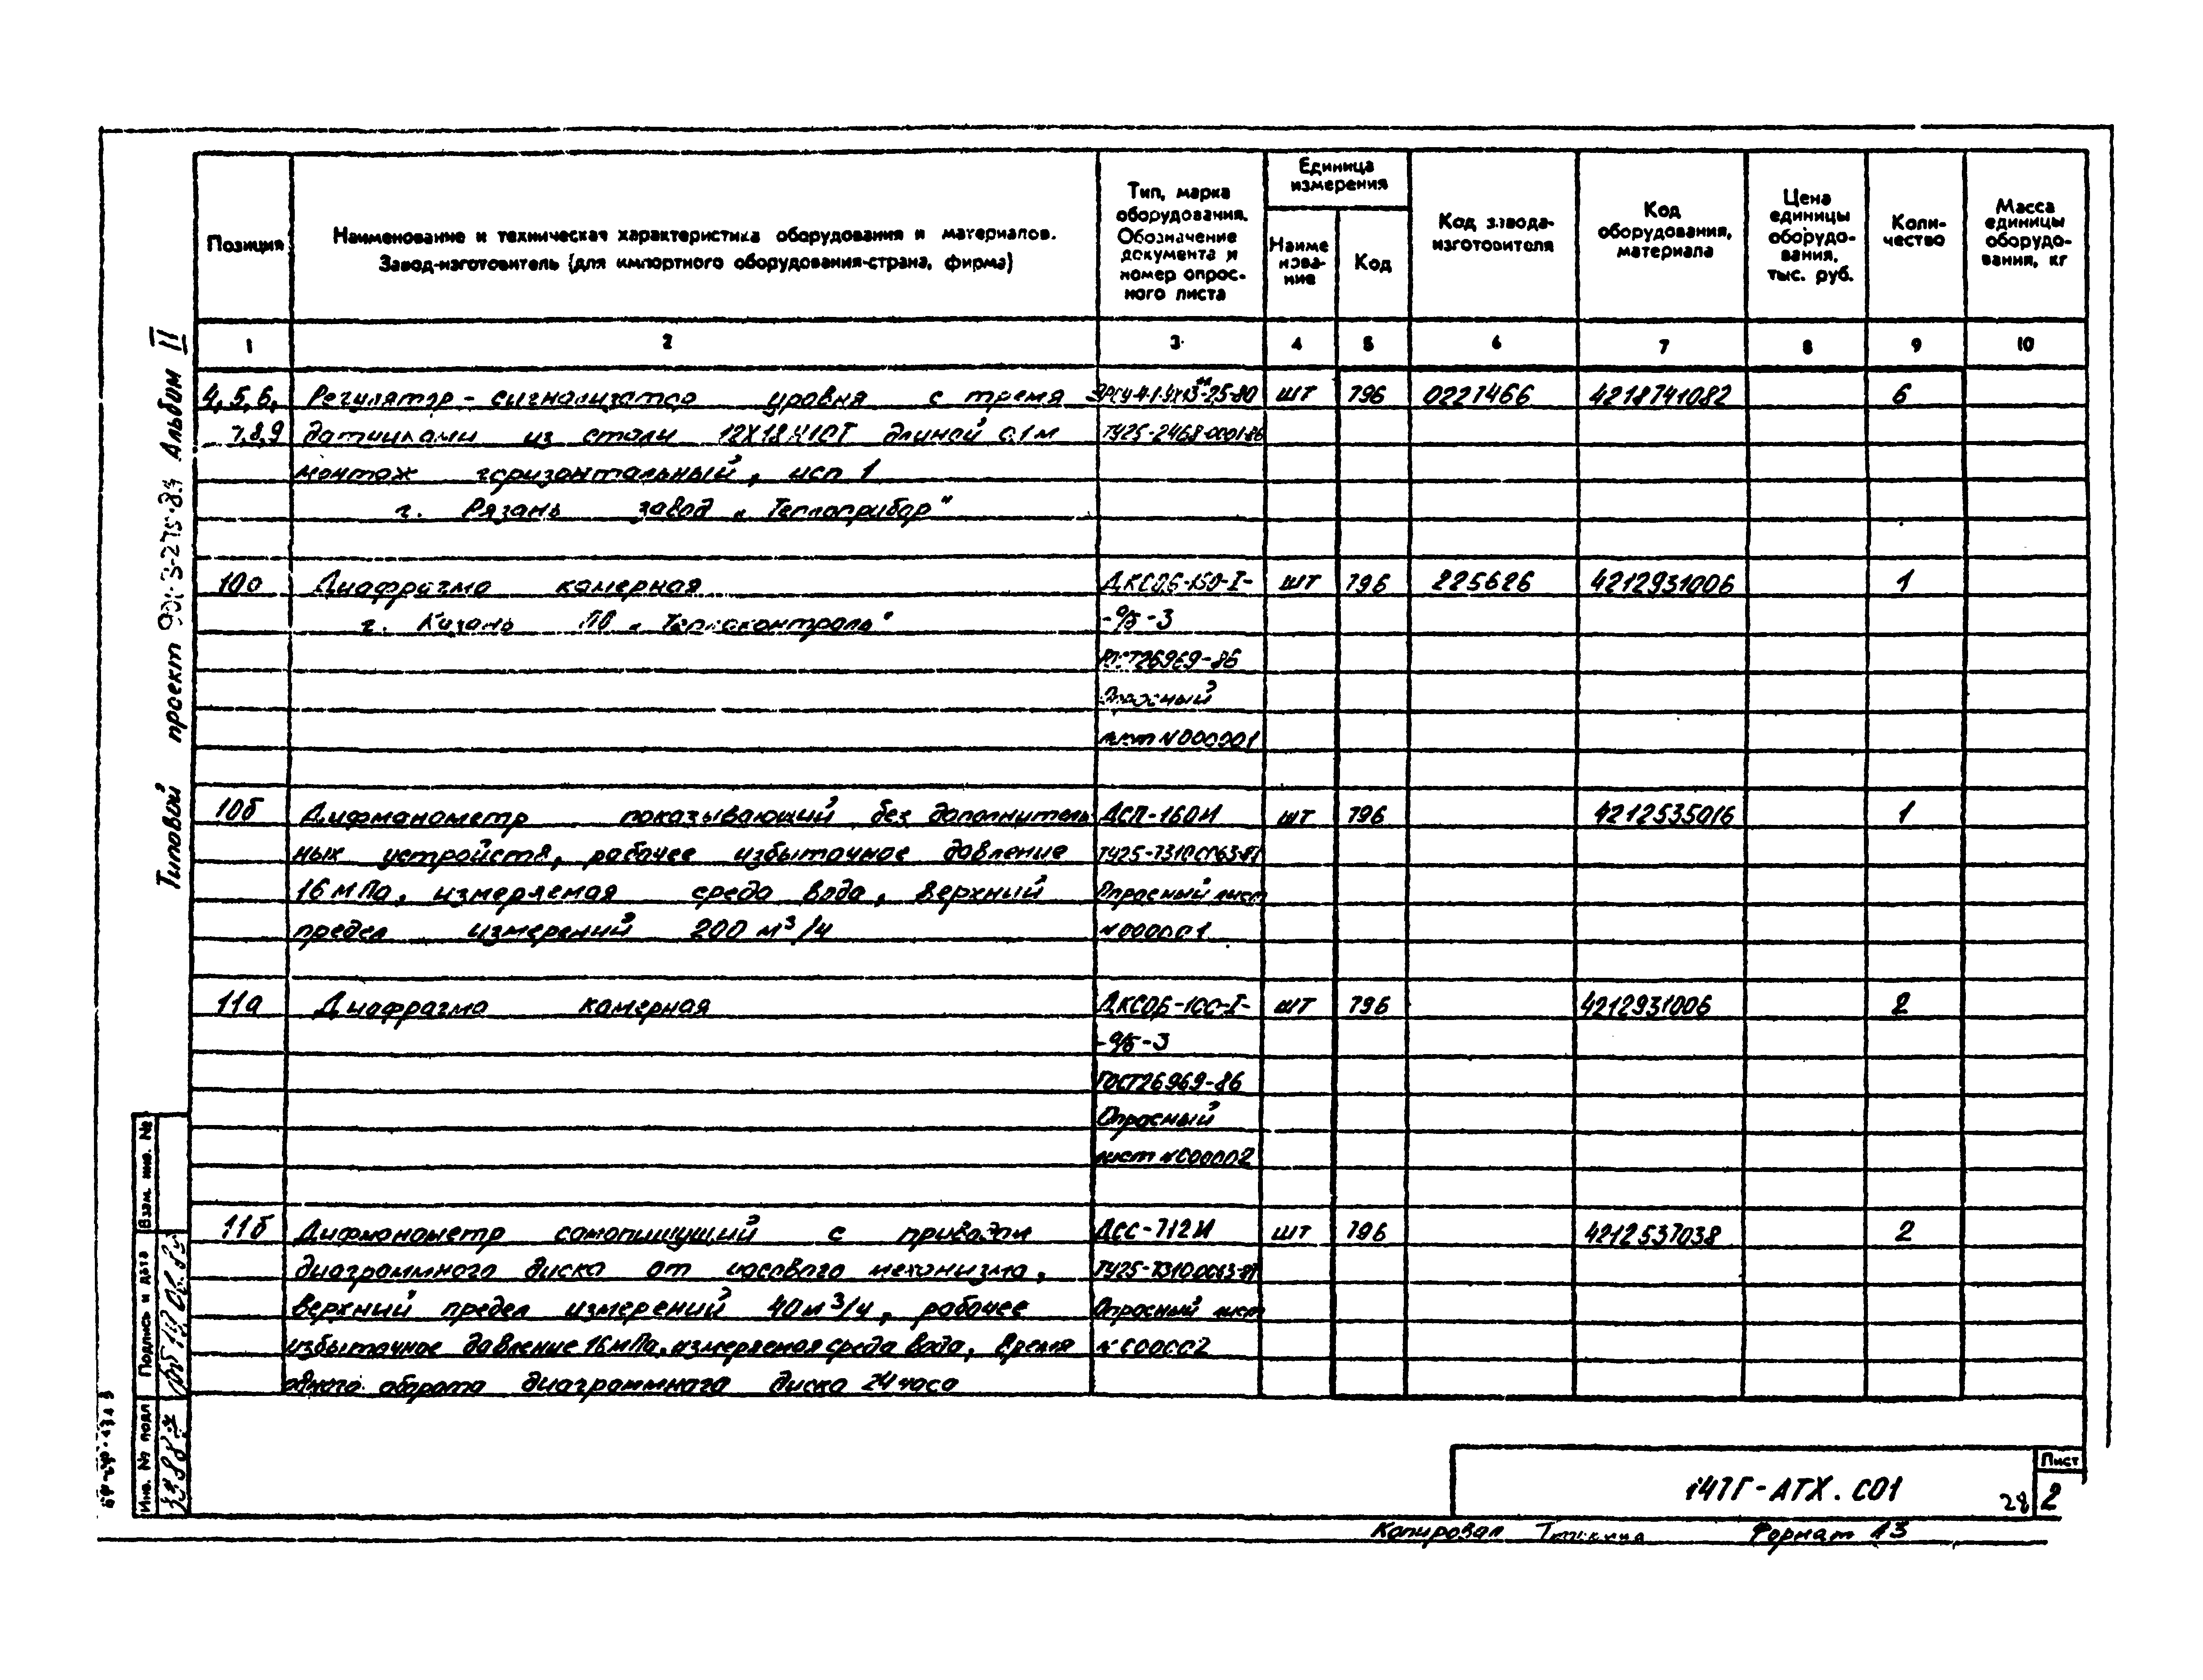 Позиция
Наименование и техническая характеристика оборудования и материалов.
Завод-изготовитель (для импортного оборудования-страна, фирма)
Тип, марка
оборудования.
Обозначение
документа и
номер опрос-
ного листа
Единица
измерения
Наиме
нова-
ние
Код
Код завода-
изготовителя
Код
оборудования,
материала
Цена
единицы
оборудо-
вания,
тыс. руб.
Коли-
чество
Масса
единицы
оборудо-
вания, кг
1 2 3 4 5 6 7 8 9 10
4, 5, 6, Регулятор-сигнализатор уровня с тремя шт 796 0227466 4218741082 6
7,8,9 датчиками из стали 12Х18Н10Т длиной 0,1м ТУ25-2468-0001-86
монтаж горизонтальный, исп 1
г. Рязань завод „Теплоприбор"
10а Диафрагма камерная ДКС06-150-I- шт 796 225626 4212931006 1
г. Казань ПО „Теплоконтроль" -а/б-3
ГОСТ26969-86
Опросный
лист N000001
10б Дифманометр показывающий без дополнитель ДСП-160И шт 796 4212535016 1
ных устройств, рабочее избыточное давление
16мПа, измеряемая среда вода, верхный Опросный лист
предел измерений 200 м³/ч N000001
11а Диафрагма камерная ДКС06-100-I- шт 796 4212931006 2
-а/б-3
ГОСТ26969-86
Опросный
лист N000002
11б Дифманометр самопишущий с приводом ДСС-712И шт 796 4212537038 2
диаграммного диска от часового механизма,
верхный предел измерений 40м³/ч, рабочее Опросный лист
избыточное давление 16мПа, измеряемая среда вода, время N000002
одного оборота диаграммного диска 24 часа
Типовой проект Альбом II
Взам. инв. №
Подпись и дата
Инв. № подл
14ТГ-АТХ.С01
Лист
28 2
Копировал Формат А3